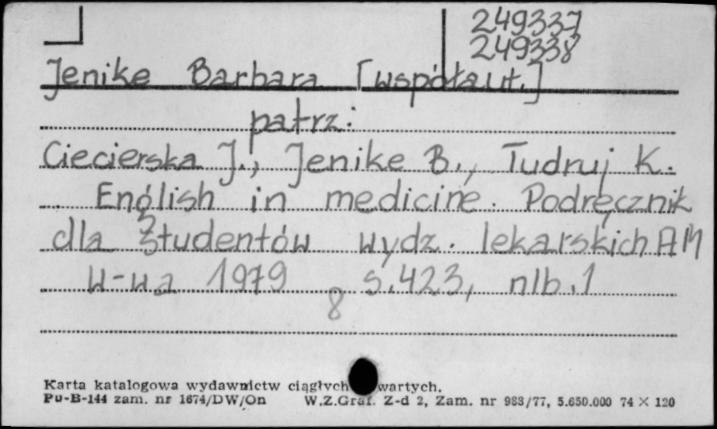 249337
249338
Jenike Barbara [współaut.]
patrz:
Ciecierska J., Jenike B., Tudruj K.
English in medicine. Podręcznik
dla studentów wydz. lekarskich AM
W-wa 1979 s.423, nlb.1
8
Karta katalogowa wydawnictw ciągłych wartych.
Pu-B-144 zam. nr 1674/DW/On W.Z.Graf. Z-d 2, Zam. nr 983/77, 5.650.000 74 × 120